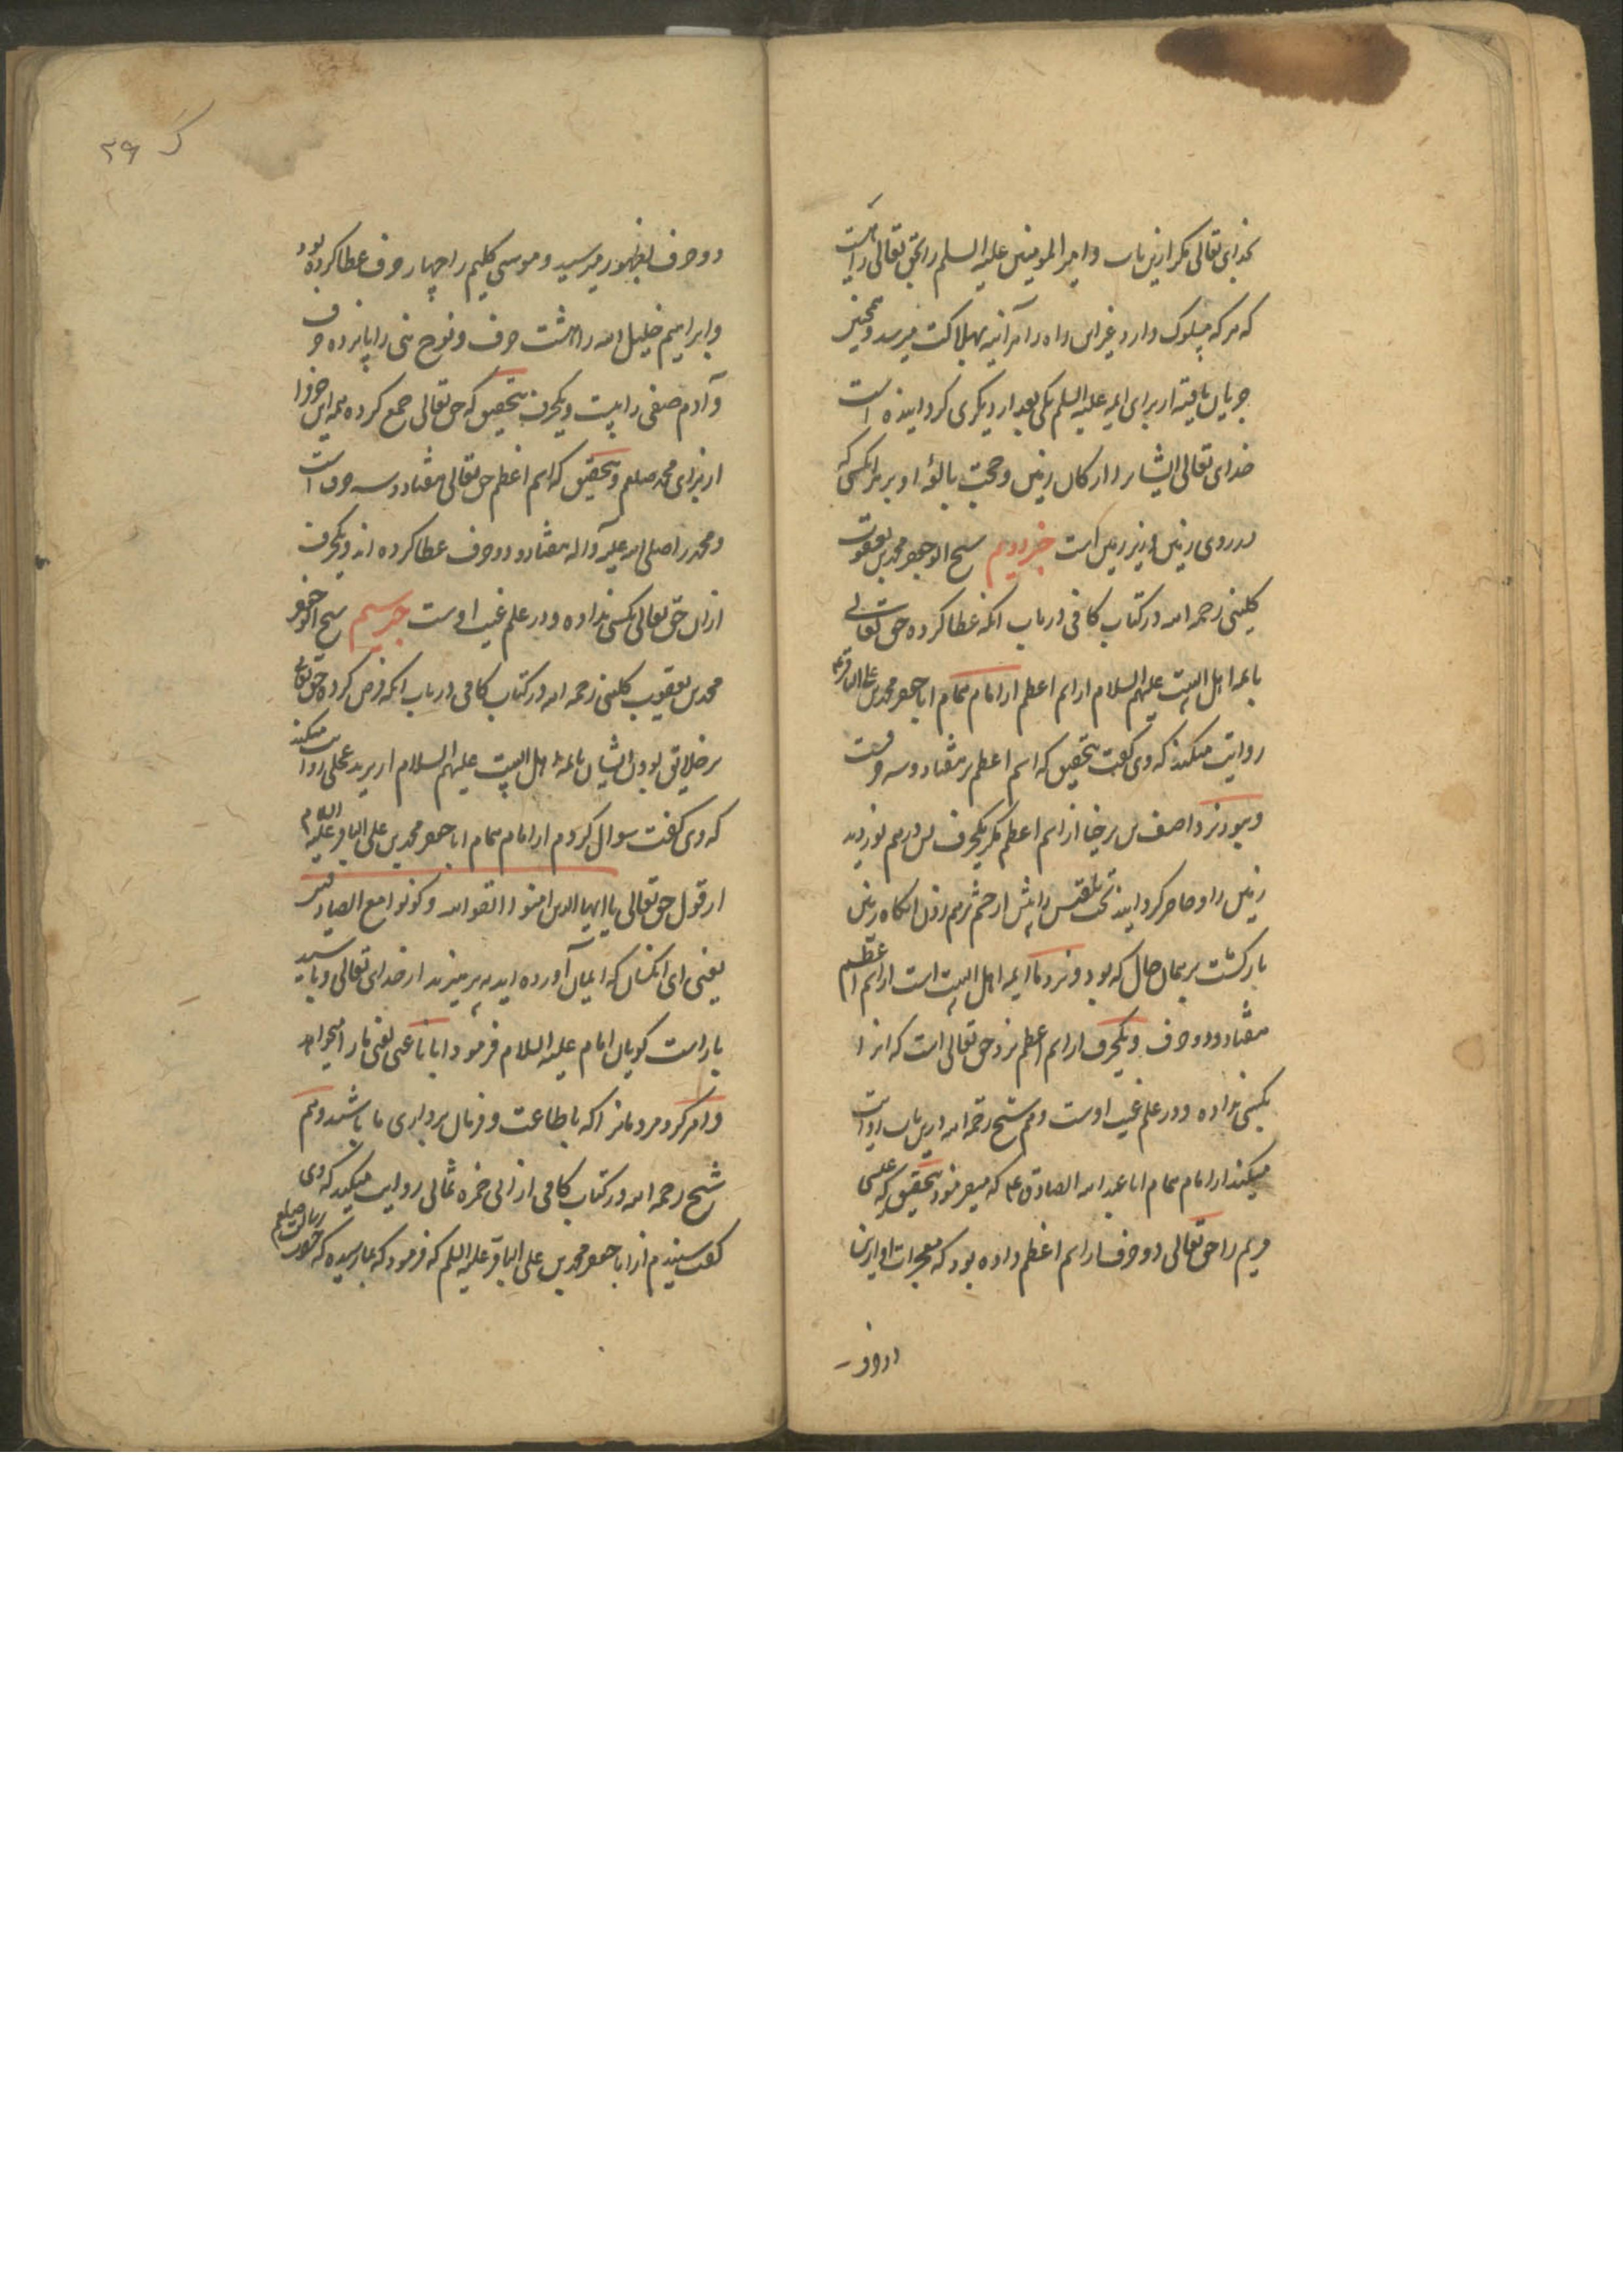 بخدای تعالی مکر ازین باب و امیر المومنین علیه السلم را بحق تعالی راهیست
که هرکه سلوک دارد غیر این راه را هرآئینه بهلاکت میرسد و همچنین
جریان یافته از برای ایمه علیه السلم یکی بعد از دیکری کردانیده است
خدای تعالی ایشانرا ارکان زمین و حجت بالغه او بر هر انکسی که
در روی زمین و زیر زمین است خبر دویم شیخ ابو جعفر محمد بن یعقوب
کلینی رحمه الله در کتاب کافی در باب انکه عطا کرده حق تعالی
بایمه اهل البیت علیهم السلام از اسم اعظم از امام همام ابا جعفر محمد بن علی الباقر ع
روایت میکند که وی کفت بتحقیق که اسم اعظم بر هفتاد و سه حرفست
و نبود نزد اصف بن برخیا از اسم اعظم مکر یکحرف پس درهم نوردید
زمین را و حاضر کردانید تخت بلقیس را پیش از چشم برهم زدن انکاه زمین
بازکشت بر همان حال که بود و نزد ما ایمه اهل البیت است از اسم اعظم
هفتاد و دو حرف و یکحرف از اسم اعظم نزد حق تعالی است که انرا
بکسی نداده و در علم غیب اوست و هم شیخ رحمه الله درین باب روایت
میکند از امام همام ابا عبد الله الصادق ع که میفرمود بتحقیق که عیسی
مریم را حق تعالی دو حرف از اسم اعظم داده بود که معجزات او ازین
دو حرف
ک ۲۹
دو حرف بظهور میرسید و موسی کلیم را چهار حرف عطا کرده بود
و ابراهیم خلیل الله را هشت حرف و نوح نبی را پانزده حرف
و آدم صفی را بیست و یکحرف بتحقیق که حق تعالی جمع کرده همه این حرفرا
از برای محمد صلعم و بتحقیق که اسم اعظم حق تعالی هفتاد و سه حرف است
و محمد را صلی الله علیه و آله هفتاد و دو حرف عطا کرده اند و یکحرف
ازان حق تعالی بکسی نداده و در علم غیب اوست خبر سیم شیخ ابو جعفر
محمد بن یعقوب کلینی رحمه الله در کتاب کافی در باب انکه فرض کرده حق تعالی
بر خلایق بودن ایشان بایمه اهل البیت علیهم السلام از برید عجلی روایت میکند
که وی کفت سوال کردم از امام همام ابا جعفر محمد بن علی الباقر علیه السلام
از قول حق تعالی یا ایها الذین امنوا اتقوا الله و کونوا مع الصادقین
یعنی ای انکسان که ایمان آورده اید بپرهیزید از خدای تعالی و باشید
با راست کویان امام علیه السلام فرمود ایانا عنی یعنی ما را میخواهد
و امر کرد مردمانرا که باطاعت و فرمان برداری ما باشند و هم
شیخ رحمه الله در کتاب کافی از ابی حمزه ثمالی روایت میکند که وی
کفت شنیدم از ابا جعفر محمد بن علی الباقر علیه السلم که فرمود که بما رسیده که حضرت رسالت صلعم